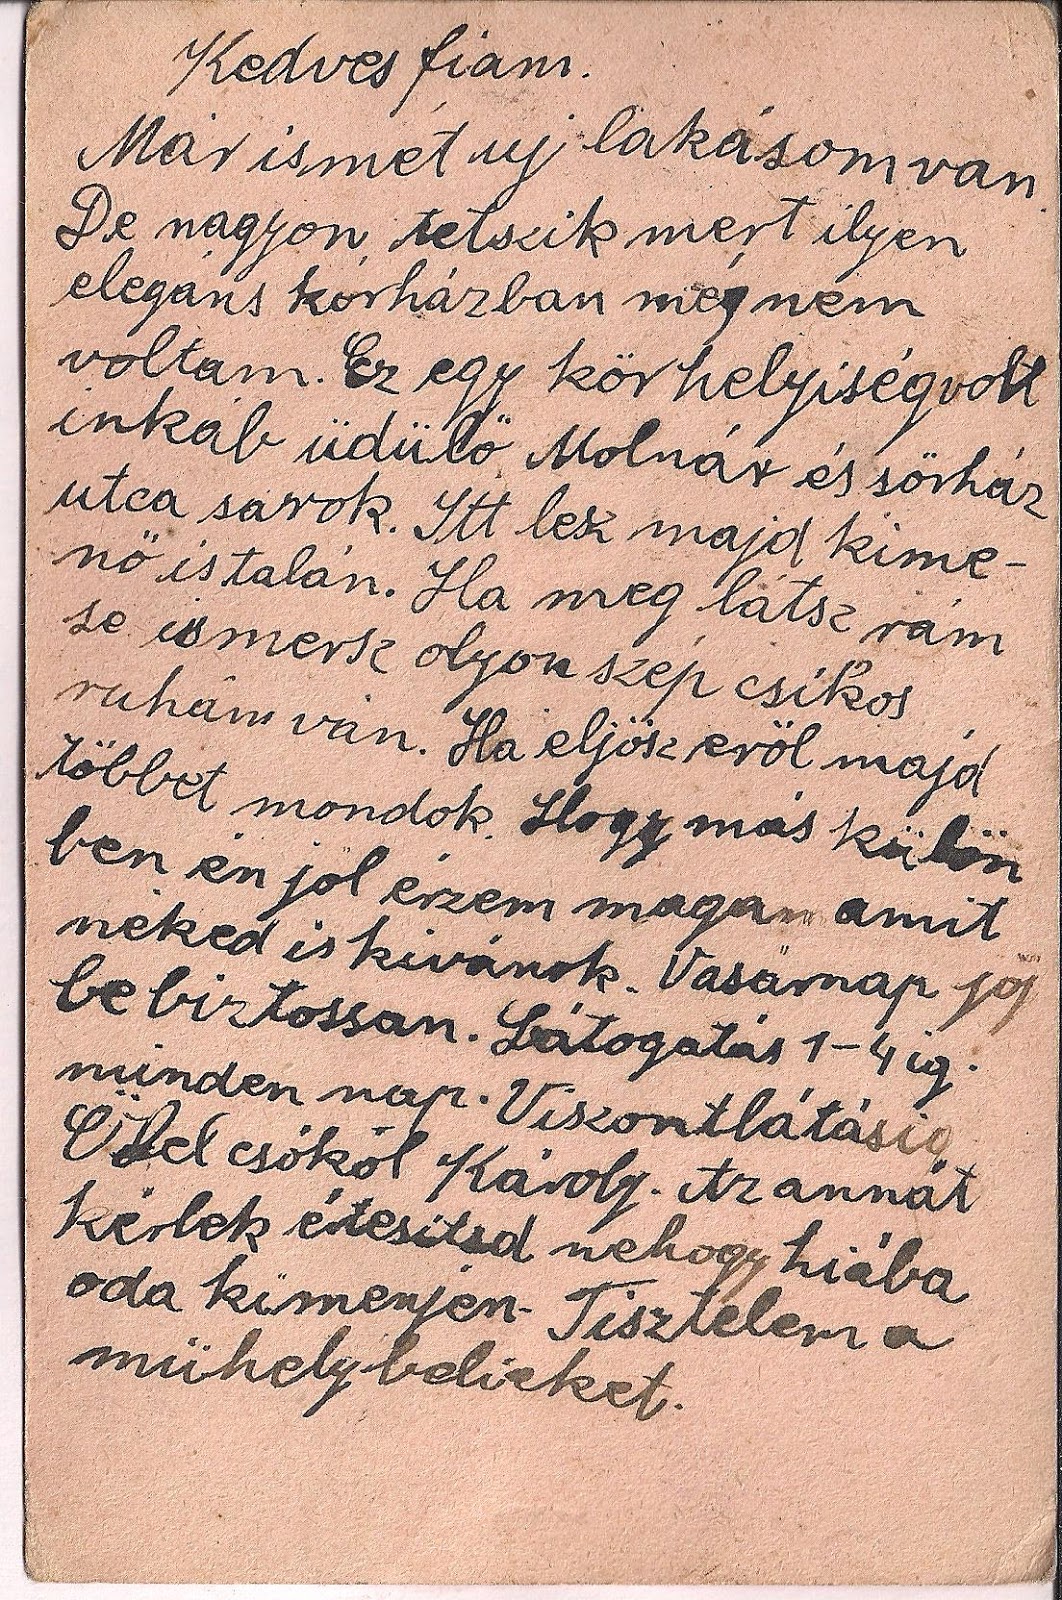 Kedves fiam.
Már ismét uj lakásom van.
De nagyon tetszik mert ilyen
elegáns kórházban még nem
voltam. Ez egy kör helyiség volt
inkáb üdülő Molnár és sörház
utca sarok. Itt lesz majd kime-
nő is talán. Ha meg látsz rám
se ismersz olyon szép csíkos
ruhám van. Ha eljösz eről majd
többet mondok. Hogy más külön
ben én jól érzem magam amit
néked is kivánok. Vasárnap jöj
be biztossan. Látogatás 1-4 ig.
minden nap. Viszontlátásig
Ölel csókól Károly. Az annát
kérlek étesitsd nehogy hiába
oda kimenjen- Tisztelem a
mühelybelieket.